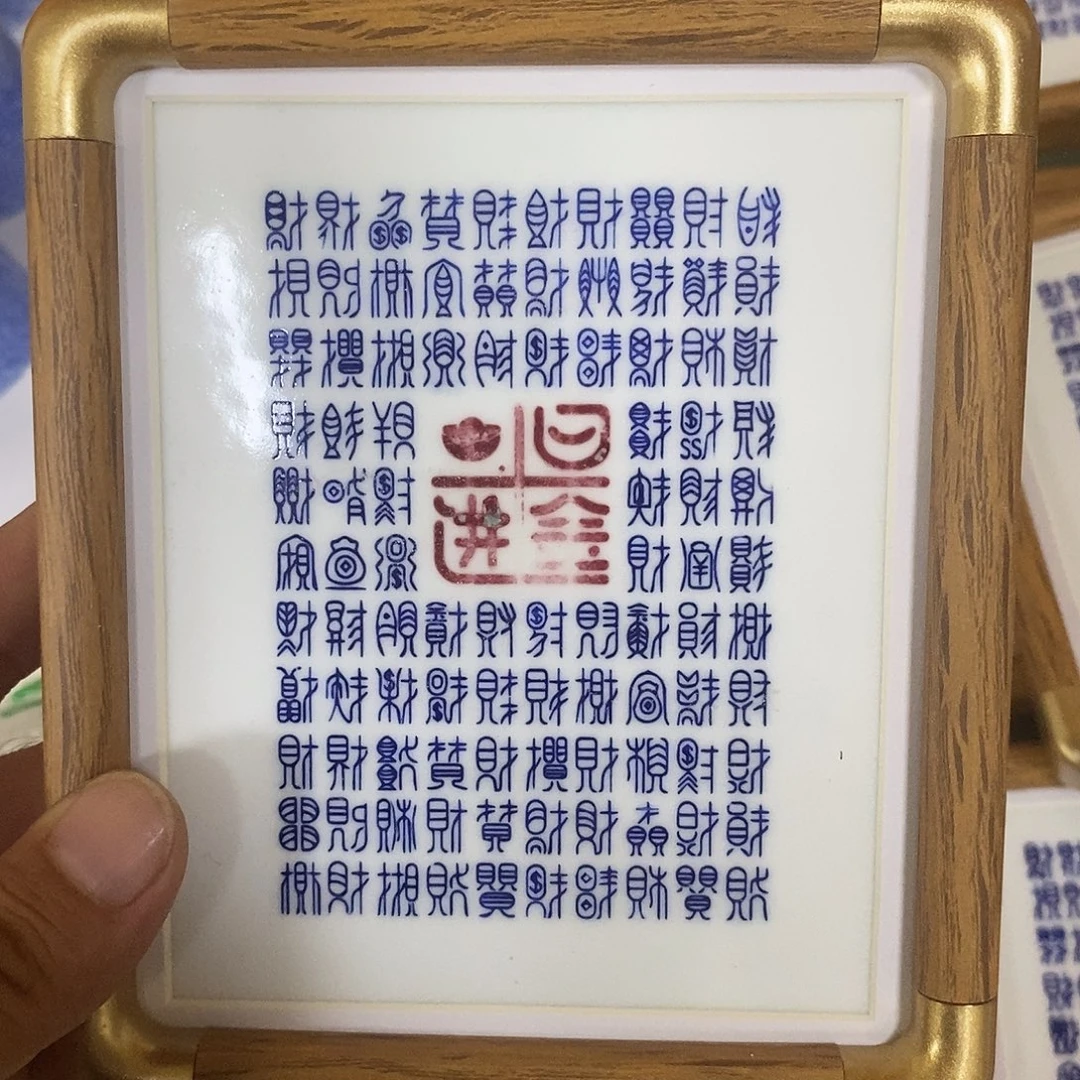 財財財財財財財財財財
財財財財財財財財財財
財財財財財財財財財財
財財財財財財
財財財財財財
財財財財財財
財財財財財財財財財財
財財財財財財財財財財
財財財財財財財財財財
財財財財財財財財財財
財財財財財財財財財財
日進斗金